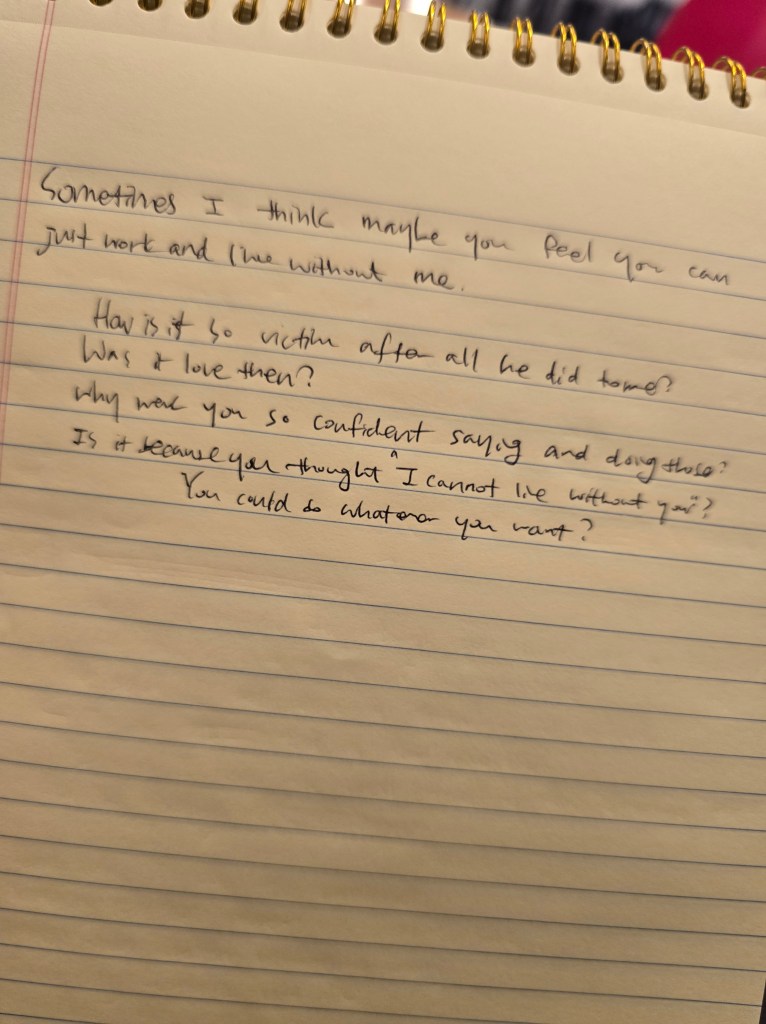 Sometimes I think maybe you feel you can
just work and live without me.
How is it so victim after all he did to me?
Was it love then?
why were you so confident saying and doing those?
Is it because you thought "I cannot live without you"?
You could do whatever you want?